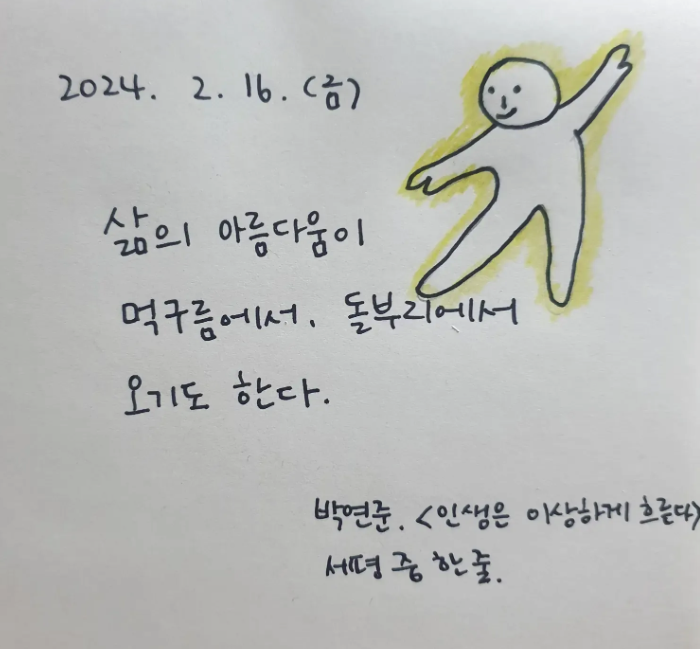 2024. 2. 16. (금)
삶의 아름다움이
먹구름에서. 돌부리에서
오기도 한다.
박연준. <인생은 이상하게 흐른다>
서평 중 한 줄.